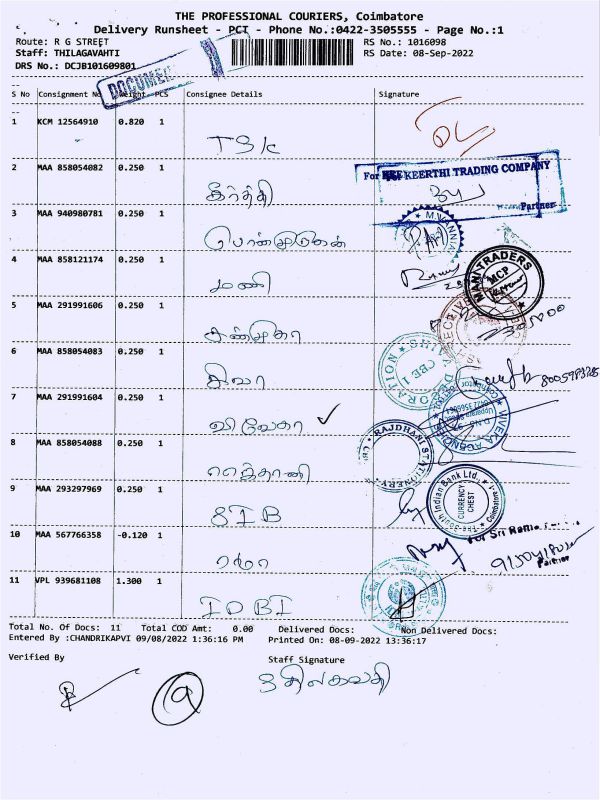 THE PROFESSIONAL COURIERS, Coimbatore
Delivery Runsheet - PCT - Phone No.:0422-3505555 - Page No.:1
Route: R G STREET RS No.: 1016098
Staff: THILAGAVAHTI RS Date: 08-Sep-2022
DRS No.: DCJB101609801
DOCUMEN
S No Consignment No Weight PCS Consignee Details Signature
1 KCM 12564910 0.820 1
TSK
2 MAA 858054082 0.250 1
For KEERTHI TRADING COMPANY
கீர்த்தி
Partner
3 MAA 940980781 0.250 1
M.VANNIA
பொன்முருகன்
4 MAA 858121174 0.250 1
மணி
MANI TRADERS
MCP
5 MAA 291991606 0.250 1
சண்முகா
RECEIVE
6 MAA 858054083 0.250 1
சிவா
SHIV DECORATION
CBE 1
8005983785
7 MAA 291991604 0.250 1
விவேகா ✓
VIVEKA AGENCI
8 MAA 858054088 0.250 1
RAJDHANI STATIONERY
9 MAA 293297969 0.250 1
SIB
The South Indian Bank Ltd.,
CURRENCY CHEST
Coimbatore
10 MAA 567766358 -0.120 1
ரமா
For Sri Rama
Partner
11 VPL 939681108 1.300 1
IDBI
Total No. Of Docs: 11 Total COD Amt: 0.00 Delivered Docs: Non Delivered Docs:
Entered By :CHANDRIKAPVI 09/08/2022 1:36:16 PM Printed On: 08-09-2022 13:36:17
Verified By Staff Signature
திலகவதி